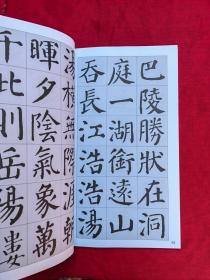 巴陵勝狀在洞
庭一湖銜遠山
吞長江浩浩湯
湯橫無際涯朝
暉夕陰氣象萬
千此則岳陽樓